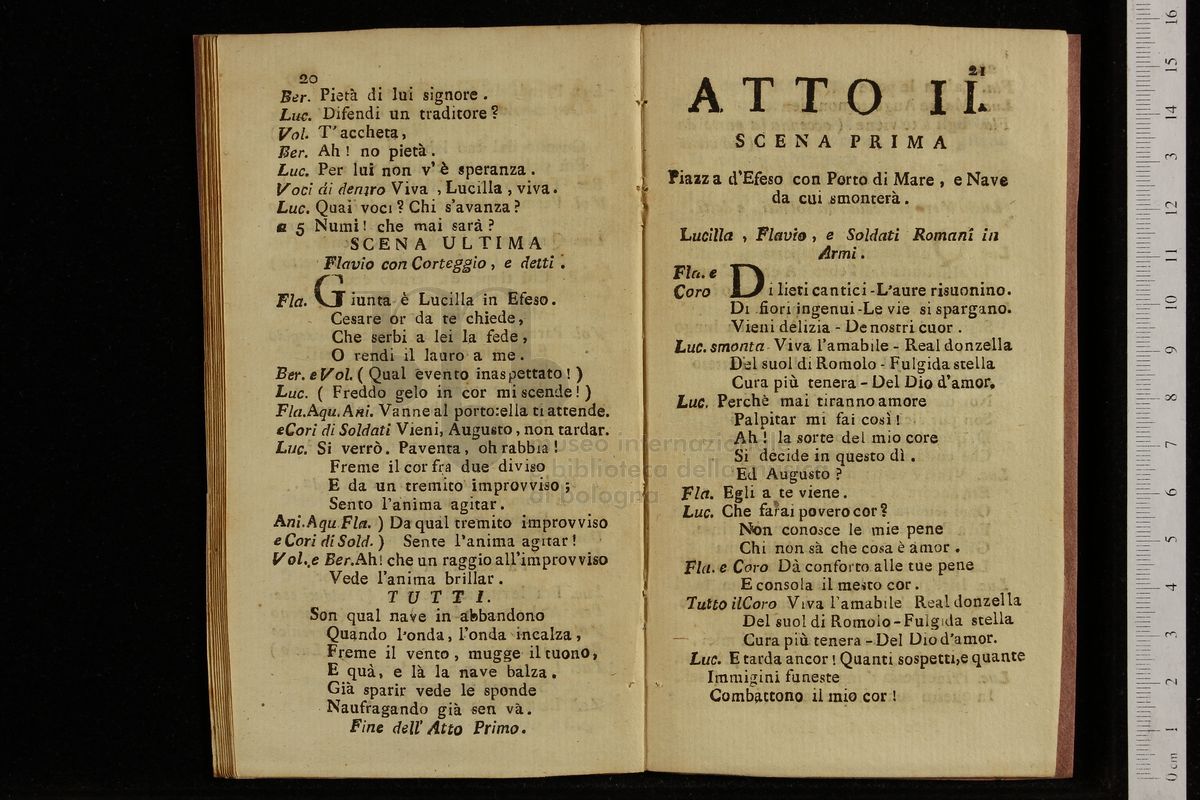 20
Ber. Pietà di lui signore .
Luc. Difendi un traditore ?
Vol. T'accheta,
Ber. Ah ! no pietà .
Luc. Per lui non v'è speranza .
Voci di dentro Viva , Lucilla , viva .
Luc. Quai voci ? Chi s'avanza ?
a 5 Numi ! che mai sarà ?
SCENA ULTIMA
Flavio con Corteggio , e detti .
Fla. Giunta è Lucilla in Efeso .
Cesare or da te chiede ,
Che serbi a lei la fede ,
O rendi il lauro a me .
Ber. e Vol. ( Qual evento inaspettato ! )
Luc. ( Freddo gelo in cor mi scende ! )
Fla.Aqu.Ani. Vanne al porto:ella ti attende.
eCori di Soldati Vieni, Augusto , non tardar.
Luc. Si verrò. Paventa , oh rabbia !
Freme il cor fra due diviso
E da un tremito improvviso ;
Sento l'anima agitar .
Ani.Aqu Fla. ) Da qual tremito improvviso
e Cori di Sold. ) Sente l'anima agitar !
Vol. e Ber.Ah! che un raggio all'improvviso
Vede l'anima brillar .
TUTTI.
Son qual nave in abbandono
Quando l'onda, l'onda incalza ,
Freme il vento , mugge il tuono,
E quà, e là la nave balza .
Già sparir vede le sponde
Naufragando già sen và.
Fine dell'Atto Primo.
21
ATTO II.
SCENA PRIMA
Piazza d'Efeso con Porto di Mare , e Nave
da cui smonterà .
Lucilla , Flavio , e Soldati Romani in
Armi .
Fla. e
Coro Di lieti cantici-L'aure risuonino.
Di fiori ingenui-Le vie si spargano.
Vieni delizia - De nostri cuor .
Luc. smonta Viva l'amabile - Real donzella
Del suol di Romolo - Fulgida stella
Cura più tenera - Del Dio d'amor.
Luc. Perchè mai tiranno amore
Palpitar mi fai così !
Ah ! la sorte del mio core
Si decide in questo dì .
Ed Augusto ?
Fla. Egli a te viene .
Luc. Che farai povero cor ?
Non conosce le mie pene
Chi non sà che cosa è amor .
Fla. e Coro Dà conforto alle tue pene
E consola il mesto cor .
Tutto il Coro Viva l'amabile Real donzella
Del suol di Romolo - Fulgida stella
Cura più tenera - Del Dio d'amor.
Luc. E tarda ancor ! Quanti sospetti,e quante
Immigini funeste
Combattono il mio cor !
museo internazionale
e biblioteca della musica
di bologna
16
15
14
13
12
11
10
9
8
7
6
5
4
3
2
1
0 cm